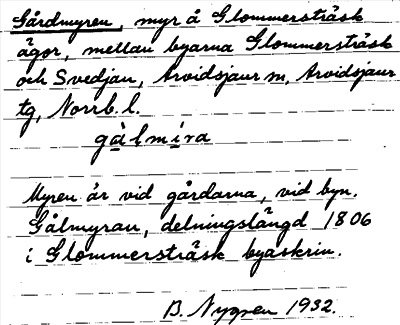 Gårdmyren, myr å Glommersträsk
ägor, mellan byarna Glommersträsk
och Svedjan, Arvidsjaur sn, Arvidsjaur
tg, Norrb. l.
gàlmíra
Myren är vid gårdarna, vid byn.
Gålmyran, delningslängd 1806
i Glommersträsk byaskrin.
B. Nygren 1932.